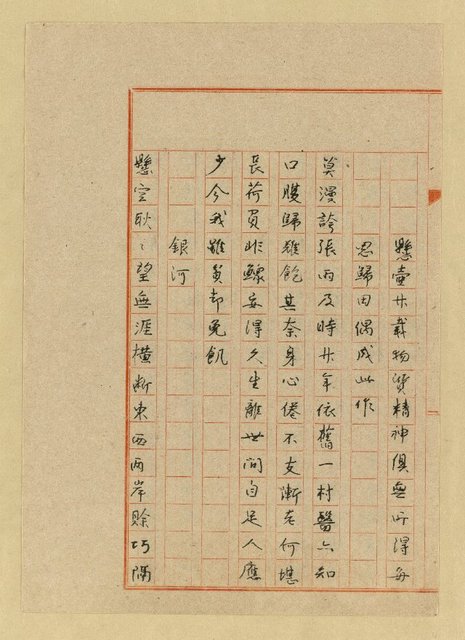 懸壺廿載物資精神俱無所得每
思歸田偶成此作
莫漫誇張雨及時廿年依舊一村醫亦知
口腹歸雖飽其奈身心倦不支漸老何堪
長荷負非鰥安得久生離世間自足人應
少今我雖貧却免飢
銀河
懸空耿〻望無涯橫斷東西兩岸賒巧隔